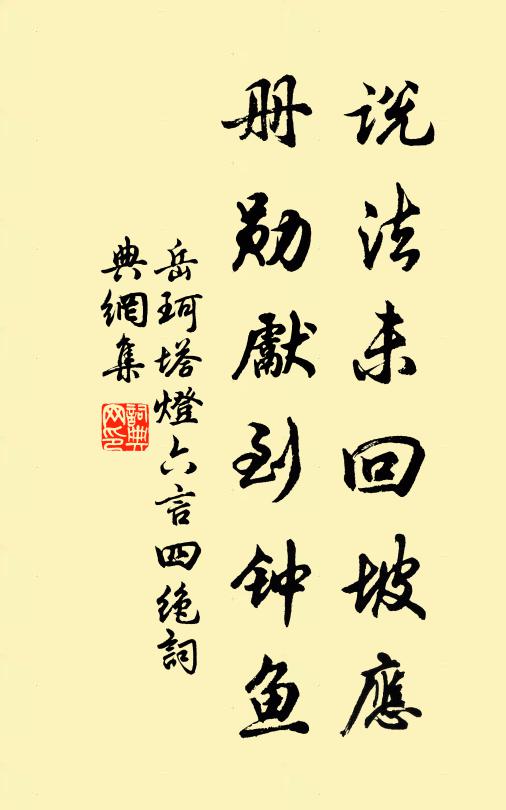 说法未回坡應
册勋獻到钟鱼
岳珂塔燈六言四绝詞
典網集
詞典
网印